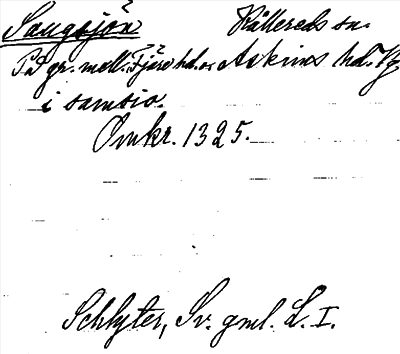 Sangsjön Kållereds sn.
På gr. mell. Fjäre hd. o. Askims hd. Vg
i samsio.
Omkr. 1325.
Schlyter, Sv. gml. L. I.